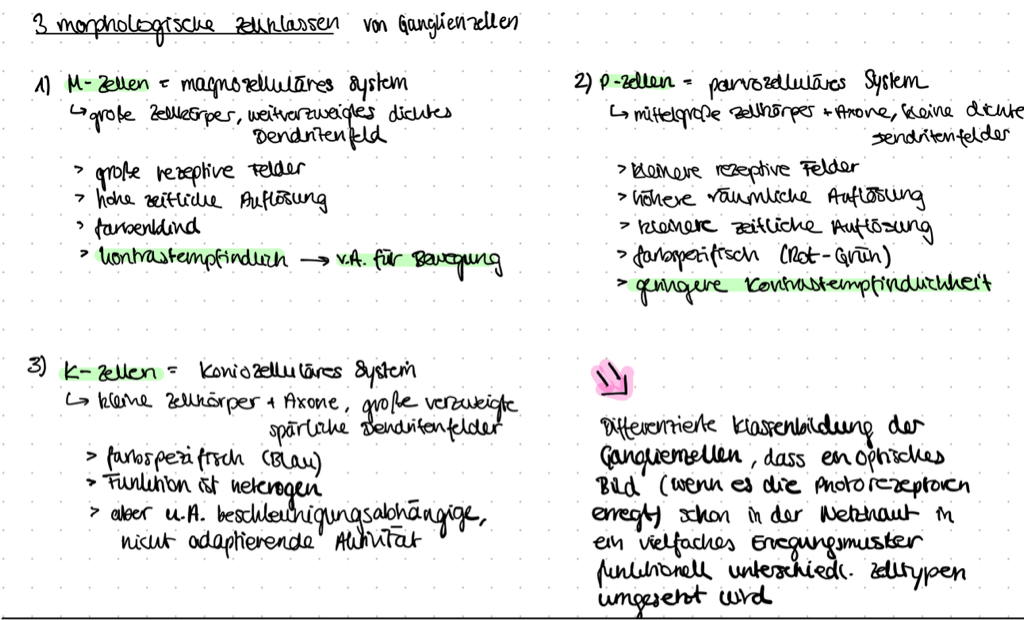 3 morphologische Zellklassen von Ganglienzellen
1) M-Zellen = magnozelluläres System
↳ große Zellkörper, weitverzweigtes dichtes
Dendritenfeld
> große rezeptive Felder
> hohe zeitliche Auflösung
> farbenblind
> kontrastempfindlich → v.A. für Bewegung
2) P-Zellen = parvozelluläres System
↳ mittelgroße Zellkörper + Axone, kleine dichte
Dendritenfelder
> kleinere rezeptive Felder
> höhere räumliche Auflösung
> kleinere zeitliche Auflösung
> farbspezifisch (Rot-Grün)
> geringere Kontrastempfindlichkeit
3) K-Zellen = Koniozelluläres System
↳ kleine Zellkörper + Axone, große verzweigte
spärliche Dendritenfelder
> farbspezifisch (Blau)
> Funktion ist heterogen
> aber u.A. beschleunigungsabhängige,
nicht adaptierende Aktivität
Differenzierte Klassenbildung der
Ganglienzellen, dass ein optisches
Bild (wenn es die Photorezeptoren
erregt) schon in der Netzhaut in
ein vielfaches Erregungsmuster
funktionell unterschiedl. Zelltypen
umgesetzt wird